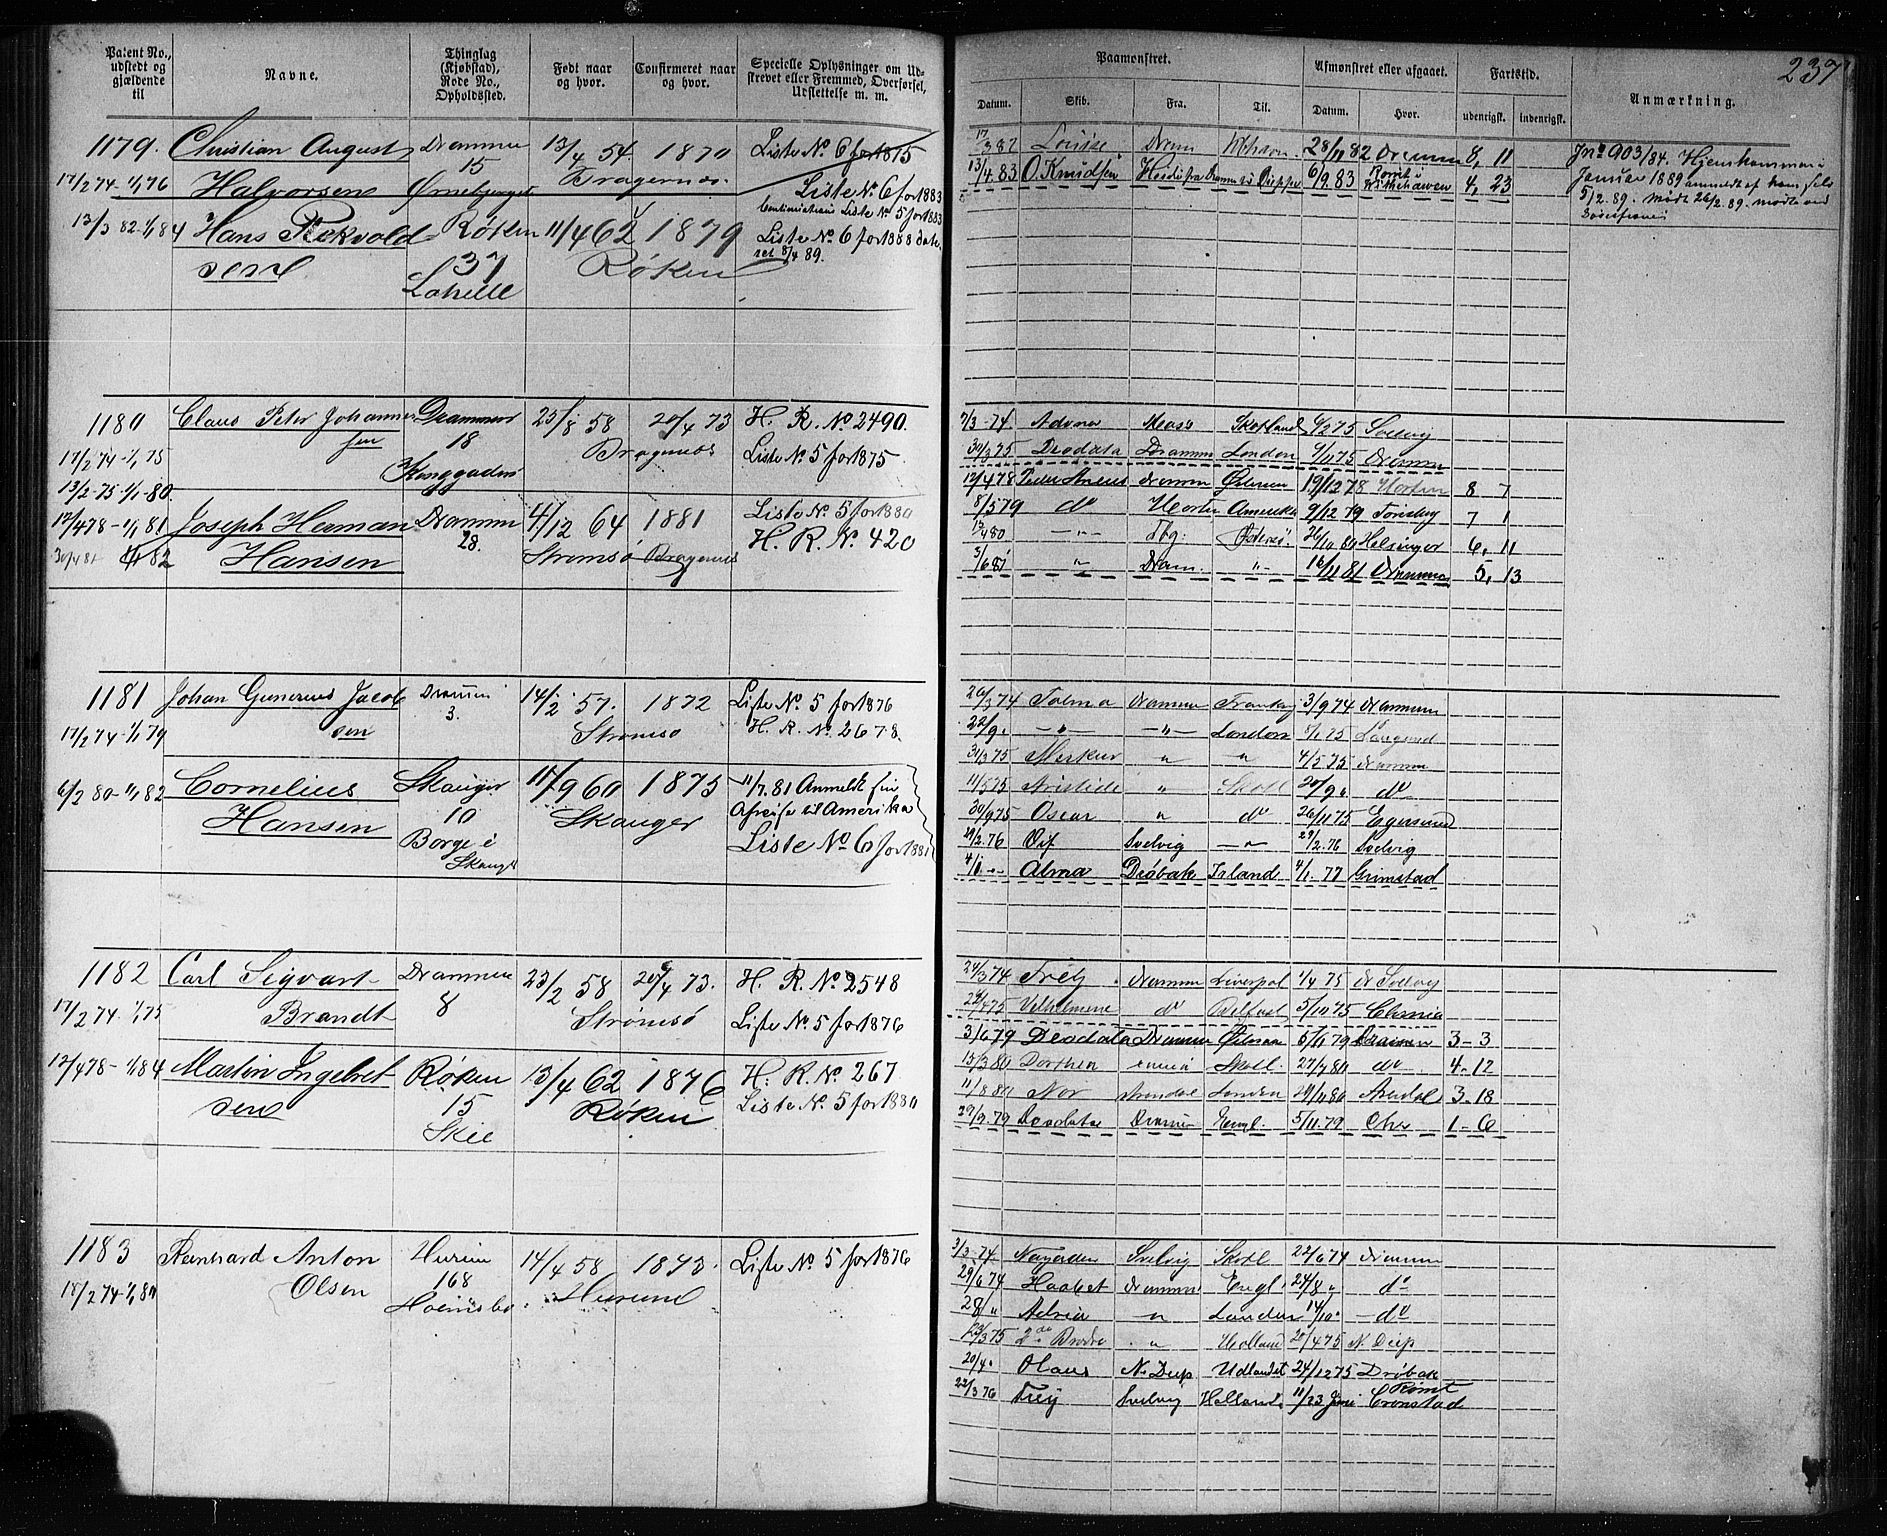 237
Patent No., udstedt og gjældende til
Navne.
Thinglag (Kjøbstad), Rode No., Opholdssted.
Født naar og hvor.
Confirmeret naar og hvor.
Specielle Oplysninger om Udskrevet eller Fremmed, Overførsel, Udslettelse m. m.
Paamønstret.
Afmønstret eller afgaaet.
Fartstid.
Anmærkning.
Datum.
Skib.
Fra.
Til.
Datum.
Hvor.
udenrigsk.
indenrigsk.
1179. Christian August Drammen 13/4 54. 1870 Liste No. 6 for 1875
17/2 74 - 1/1 76 Halvorsen 15 Bragernes. Liste No. 6 for 1883
13/3 82 - 1/1 84 Hans Røkvold Røken 11/4 62 1879 Liste No. 6 for 1888
sen 37 Røken 8/4 89.
Louise Dram 28/11 82 Drammen 8, 11
13/4 83 O. Knudsen 6/9. 83 4, 23
Jn° 903/84. Hjemkommen i
Januar 1889
5/2. 89. Mødt 26/2. 89.
1180 Claus Peter Johannes Drammen 25/8 58 20/4 73 H. R. No. 2490.
sen 18 Bragernes Liste No. 5 for 1875
17/2 74 - 1/1 75 Konggaden
13/2 - 75 - 1/1 - 80.
12/4 78 - 1/1 81 Joseph Herman Drammen 4/12 64 1881 Liste No. 5 for 1880
30/4 81 - 1/1 82 Hansen 28. Strømsø Bragernes H. R. No. 420
7/3 - 74. Skotland Svelvig
30/3 75 Deodata Drammen London 9/11 75 Drammen
12/4 78 Drammen 19/12 78 Horten 8 7
8/5 79 do Horten Amerika 9/12 79 Tønsberg 7 1
Tbg. Helsingør 6, 11
3/6 81 " Dram. " 16/11 81 Drammen 5, 13
1181 Johan Gunerius Jacob Drammen 14/2 57. 1872 Liste No. 5 for 1876
sen 3. Strømsø H. R. No. 2678
17/2 74 - 1/1 79
6/2 80 - 1/1 82 Cornelius Skauger 11/9 60 1875 11/7. 81 Anmeldt fin
Hansen 10 Skauger Afreise til Amerika
Borge i Liste No. 6 for 1881
Skauger
20/3 74 Drammen 3/9 74 Drammen
22/9 " London
31/3 75 Merkur " " 4/5 75 Drammen
11/5 75 Aristide " Skotl 20/9 " do
30/9 75 Oscar " do 26/11 75 Egersund
19/2. 76 Svelvig 29/2. 76 Svelvig
Alma Drøbak Island 4/1. 77 Grimstad
1182 Carl Sigvart Drammen 23/2 58 20/4 73. H. R. No. 2548
17/2 74 - 1/1 75 Brandt 8 Strømsø Liste No. 5 for 1876
12/4 78 - 1/1 84 Martin Ingebret Røken 13/4 62 1876 H. R. No. 267
sen 15 Røken Liste No. 5 for 1880
24/3 74 Drammen Liverpol Svelvig
Vilhelmine do Belfast 5/10 75
3/6 79 Deodata Drammen 5/11 79 Drammen 3 - 3
13/3 80 Dorthea Skotl. 27/7 80 do 4 - 12
11/8 80 Nor London Arendal 3 - 18
29/9. 79 Deodata Drammen Engl. 5/11. 79 Chr 1 - 6
1183 Reinhard Anton Hurum 14/4 58 1873. Liste No. 5 for 1876
18/2 74 - 1/1 80 Olsen 168 Hurum
3/3 - 74 Najaden Svelvig Skotl 22/6 74 Drammen
29/6 74 Haabet Drammen Engl. 24/8 " do
28/ " Adria " London 14/10 " do
2de Brødre " Holland 20/4 75 N. Diep
20/4 " Olaus N. Diep Udlandet 24/12 75 Drøbak
22/3 76 Frey Svelvig Holland 11/23 Juni Rømt Cronstad